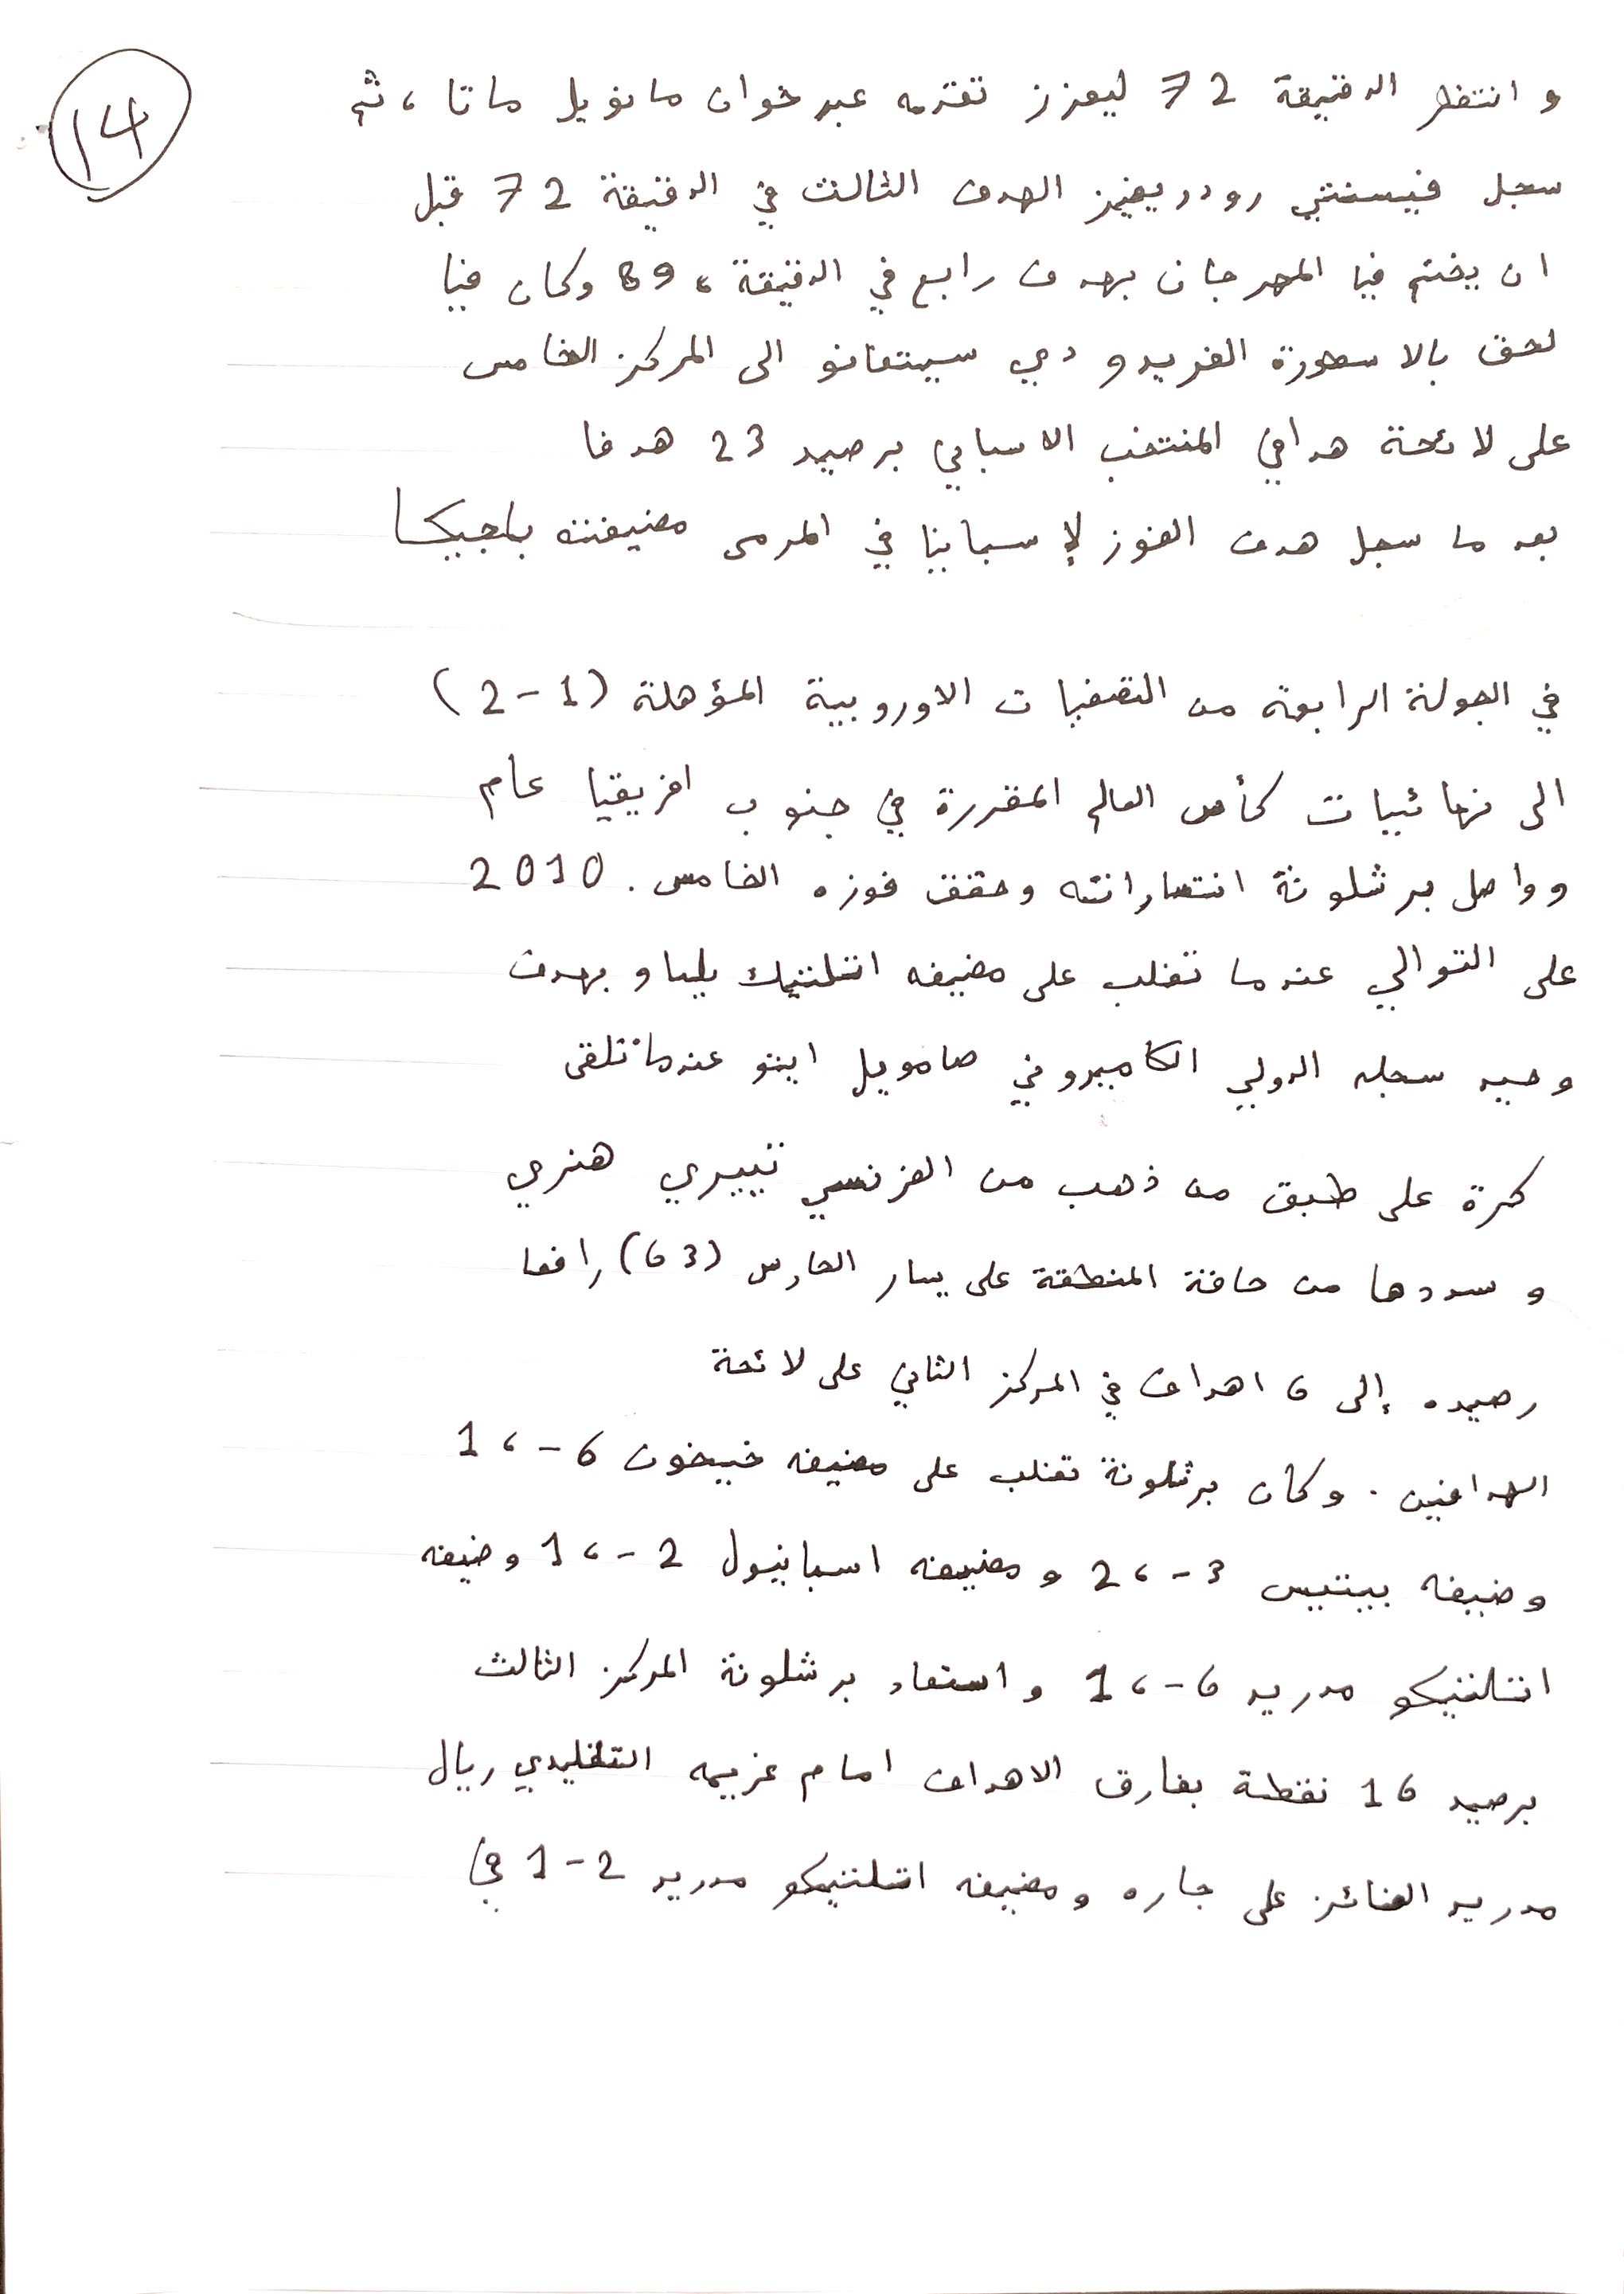 14
و انتظر الدقيقة 72 ليعزز تقدمه عبر خوان مانويل ماتا ، ثم
سجل فيسنتي رودريغيز الهدف الثالث في الدقيقة 72 قبل
ان يختم فيا المهرجان بهدف رابع في الدقيقة ، 89 وكان فيا
لحق بالاسطورة الفريدو دي ستيفانو الى المركز الخامس
على لائحة هدافي المنتخب الاسباني برصيد 23 هدفا
بعد ما سجل هدف الفوز لإسبانيا في المرمى مضيفته بلجيكا
في الجولة الرابعة من التصفيات الاوروبية المؤهلة (1 - 2)
الى نهائيات كأس العالم المقررة في جنوب افريقيا عام
وواصل برشلونة انتصاراته وحقق فوزه الخامس . 2010
على التوالي عندما تغلب على مضيفه اتلتيك بلباو بهدف
وحيد سجله الدولي الكاميروني صامويل ايتو عندما تلقى
كرة على طبق من ذهب من الفرنسي تييري هنري
و سددها من حافة المنطقة على يسار الحارس (63) رافعا
رصيده إلى 6 اهداف في المركز الثاني على لائحة
الهدافين . وكان برشلونة تغلب على مضيفه خيخون 6 - ، 1
وضيفه بيتيس 3 - ، 2 ومضيفه اسبانيول 2 - ، 1 وضيفه
اتلتيكو مدريد 6 - ، 1 و استعاد برشلونة المركز الثالث
برصيد 16 نقطة بفارق الاهداف امام غريمه التقليدي ريال
مدريد الفائز على جاره ومضيفه اتلتيكو مدريد 2 - 1 في